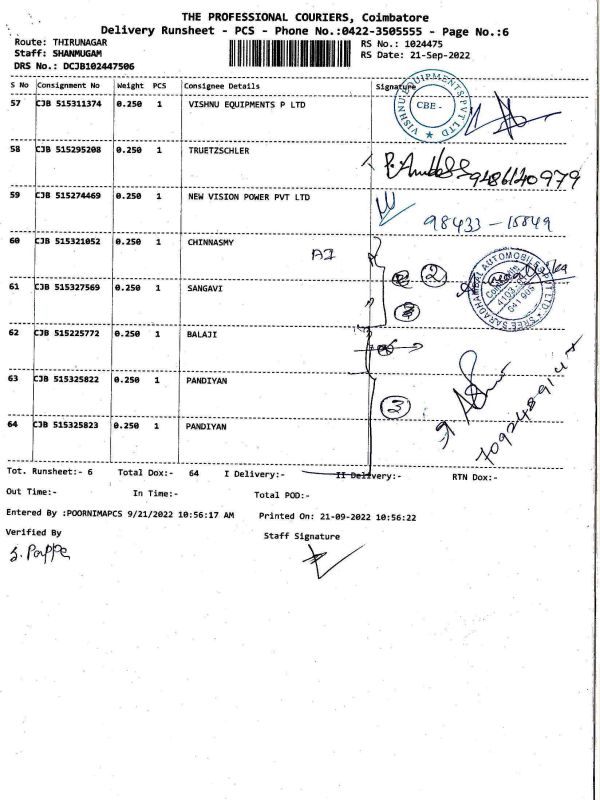 THE PROFESSIONAL COURIERS, Coimbatore
Delivery Runsheet - PCS - Phone No.:0422-3505555 - Page No.:6
Route: THIRUNAGAR
RS No.: 1024475
Staff: SHANMUGAM
RS Date: 21-Sep-2022
DRS No.: DCJB102447506
S No Consignment No Weight PCS Consignee Details Signature
57 CJB 515311374 0.250 1 VISHNU EQUIPMENTS P LTD
VISHNU EQUIPMENTS PVT LTD ★ CBE -
58 CJB 515295208 0.250 1 TRUETZSCHLER
9486140979
59 CJB 515274469 0.250 1 NEW VISION POWER PVT LTD
98433-15849
60 CJB 515321052 0.250 1 CHINNASMY
2
SREE SARADHAMBAL AUTOMOBILES PVT LTD ★ Coimbatore
61 CJB 515327569 0.250 1 SANGAVI
62 CJB 515225772 0.250 1 BALAJI
63 CJB 515325822 0.250 1 PANDIYAN
64 CJB 515325823 0.250 1 PANDIYAN
Tot. Runsheet:- 6 Total Dox:- 64 I Delivery:- II Delivery:- RTN Dox:-
Out Time:- In Time:- Total POD:-
Entered By :POORNIMAPCS 9/21/2022 10:56:17 AM Printed On: 21-09-2022 10:56:22
Verified By
Staff Signature